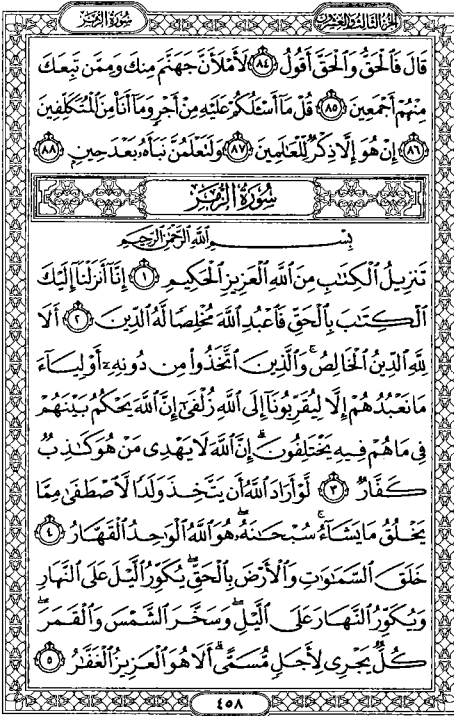 سُورَةُ الزُّمَرِ
الجُزْءُ الثَّالِثُ وَالعِشْرُونَ
قَالَ فَالْحَقُّ وَالْحَقَّ أَقُولُ ﴿٨٤﴾ لَأَمْلَأَنَّ جَهَنَّمَ مِنكَ وَمِمَّن تَبِعَكَ
مِنْهُمْ أَجْمَعِينَ ﴿٨٥﴾ قُلْ مَا أَسْـَٔلُكُمْ عَلَيْهِ مِنْ أَجْرٍ وَمَا أَنَا۠ مِنَ الْمُتَكَلِّفِينَ
﴿٨٦﴾ إِنْ هُوَ إِلَّا ذِكْرٌ لِّلْعَٰلَمِينَ ﴿٨٧﴾ وَلَتَعْلَمُنَّ نَبَأَهُۥ بَعْدَ حِينٍ ﴿٨٨﴾
سُورَةُ الزُّمَرِ
بِسْمِ اللَّهِ الرَّحْمَٰنِ الرَّحِيمِ
تَنزِيلُ الْكِتَٰبِ مِنَ اللَّهِ الْعَزِيزِ الْحَكِيمِ ﴿١﴾ إِنَّا أَنزَلْنَا إِلَيْكَ
الْكِتَٰبَ بِالْحَقِّ فَاعْبُدِ اللَّهَ مُخْلِصًا لَّهُ الدِّينَ ﴿٢﴾ أَلَا
لِلَّهِ الدِّينُ الْخَالِصُ ۚ وَالَّذِينَ اتَّخَذُوا مِن دُونِهِۦ أَوْلِيَاءَ
مَا نَعْبُدُهُمْ إِلَّا لِيُقَرِّبُونَا إِلَى اللَّهِ زُلْفَىٰ إِنَّ اللَّهَ يَحْكُمُ بَيْنَهُمْ
فِي مَا هُمْ فِيهِ يَخْتَلِفُونَ ۗ إِنَّ اللَّهَ لَا يَهْدِي مَنْ هُوَ كَٰذِبٌ
كَفَّارٌ ﴿٣﴾ لَّوْ أَرَادَ اللَّهُ أَن يَتَّخِذَ وَلَدًا لَّاصْطَفَىٰ مِمَّا
يَخْلُقُ مَا يَشَاءُ ۚ سُبْحَٰنَهُۥ ۖ هُوَ اللَّهُ الْوَٰحِدُ الْقَهَّارُ ﴿٤﴾
خَلَقَ السَّمَٰوَٰتِ وَالْأَرْضَ بِالْحَقِّ ۖ يُكَوِّرُ الَّيْلَ عَلَى النَّهَارِ
وَيُكَوِّرُ النَّهَارَ عَلَى الَّيْلِ ۖ وَسَخَّرَ الشَّمْسَ وَالْقَمَرَ ۖ
كُلٌّ يَجْرِي لِأَجَلٍ مُّسَمًّى ۗ أَلَا هُوَ الْعَزِيزُ الْغَفَّٰرُ ﴿٥﴾
٤٥٨